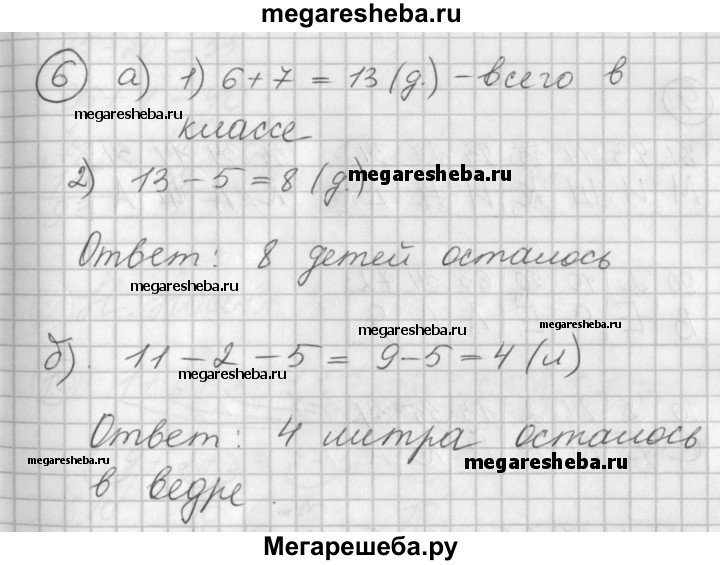 megaresheba.ru
6 а) 1) 6+7 = 13 (д.) - всего в
megaresheba.ru
классе
2) 13 - 5 = 8 (д.)
megaresheba.ru
Ответ: 8 детей осталось
megaresheba.ru
megaresheba.ru
megaresheba.ru
б). 11 - 2 - 5 = 9 - 5 = 4 (л)
megaresheba.ru
Ответ: 4 литра осталось
megaresheba.ru
megaresheba.ru
в ведре.
Мегарешеба.ру